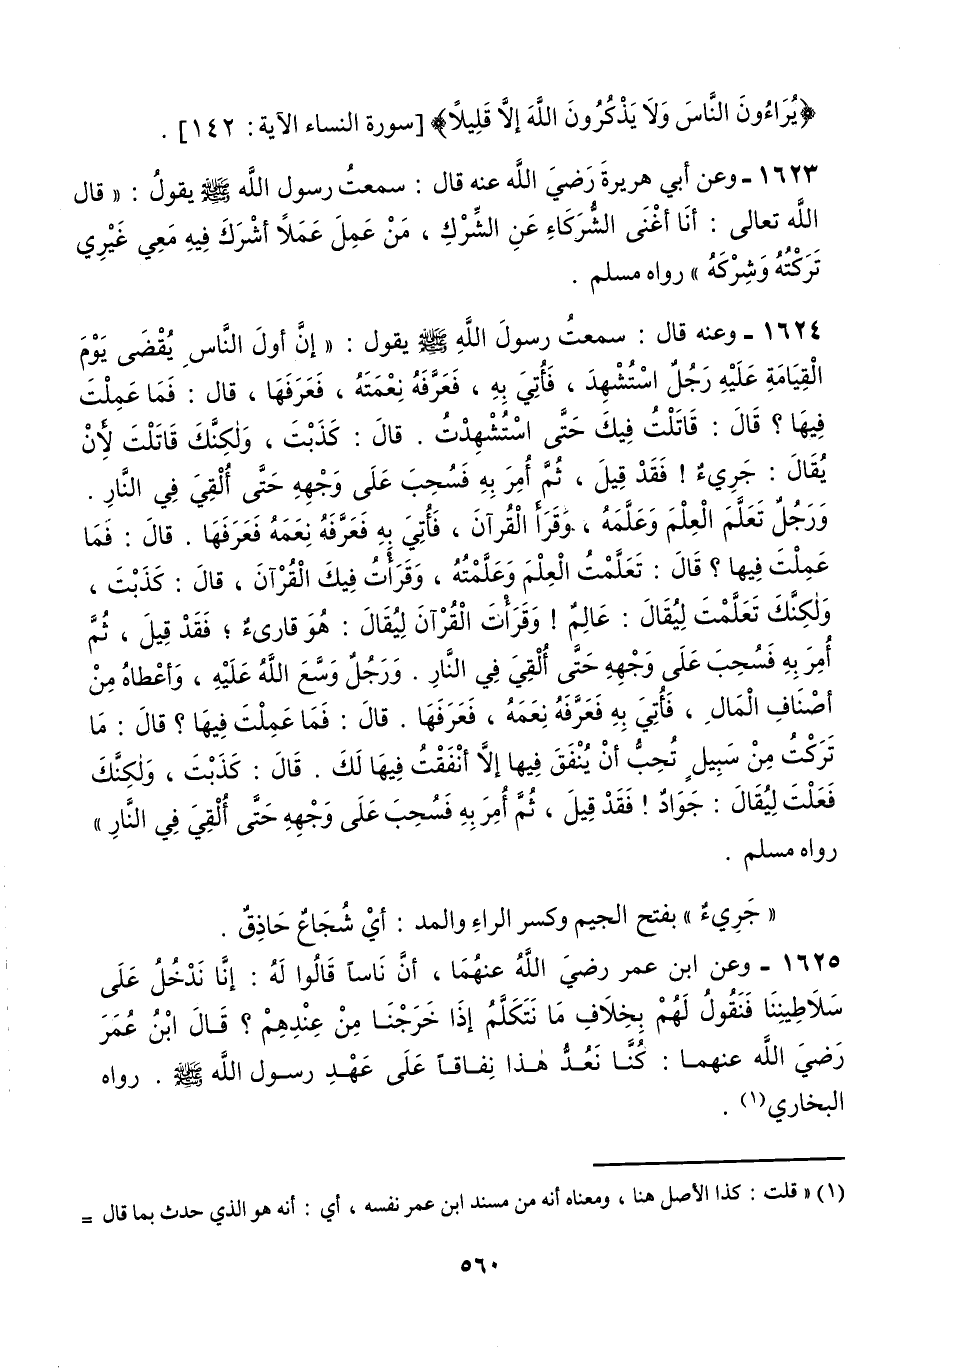 ﴿يُرَاءُونَ النَّاسَ وَلَا يَذْكُرُونَ اللَّهَ إِلَّا قَلِيلاً﴾ [سورة النساء الآية : ١٤٢] .
١٦٢٣ ـ وعن أبي هريرةَ رَضيَ اللَّه عنه قال : سمعتُ رسول اللَّه ﷺ يقولُ : « قال
اللَّه تعالى : أنَا أغْنَى الشُّرَكَاءِ عَنِ الشِّرْكِ ، مَنْ عَمِلَ عَمَلاً أشْرَكَ فِيهِ مَعِي غَيْرِي
تَرَكْتُهُ وَشِرْكَهُ » رواه مسلم .
١٦٢٤ ـ وعنه قال : سمعتُ رسولَ اللَّهِ ﷺ يقول : « إنَّ أولَ النَّاسِ يُقْضَى يَوْمَ
الْقِيَامَةِ عَلَيْهِ رَجُلٌ اسْتُشْهِدَ ، فَأُتِيَ بِهِ ، فَعَرَّفَهُ نِعْمَتَهُ ، فَعَرَفَهَا ، قال : فَمَا عَمِلْتَ
فِيهَا ؟ قَالَ : قَاتَلْتُ فِيكَ حَتَّى اسْتُشْهِدْتُ . قالَ : كَذَبْتَ ، وَلٰكِنَّكَ قَاتَلْتَ لِأَنْ
يُقَالَ : جَرِيءٌ ! فَقَدْ قِيلَ ، ثُمَّ أُمِرَ بِهِ فَسُحِبَ عَلَى وَجْهِهِ حَتَّى أُلْقِيَ فِي النَّارِ .
وَرَجُلٌ تَعَلَّمَ الْعِلْمَ وَعَلَّمَهُ ، وَقَرَأَ الْقُرآنَ ، فَأُتِيَ بِهِ فَعَرَّفَهُ نِعَمَهُ فَعَرَفَهَا . قالَ : فَمَا
عَمِلْتَ فِيها ؟ قَالَ : تَعَلَّمْتُ الْعِلمَ وَعَلَّمْتُهُ ، وَقَرَأْتُ فِيكَ الْقُرْآنَ ، قالَ : كَذَبْتَ ،
وَلٰكِنَّكَ تَعَلَّمْتَ لِيُقَالَ : عَالِمٌ ! وَقَرَأْتَ الْقُرآنَ لِيُقَالَ : هُوَ قارىءٌ ؛ فَقَدْ قِيلَ ، ثُمَّ
أُمِرَ بِهِ فَسُحِبَ عَلَى وَجْهِهِ حَتَّى أُلْقِيَ فِي النَّارِ . وَرَجُلٌ وَسَّعَ اللَّهُ عَلَيْهِ ، وَأعْطاهُ مِنْ
أصْنَافِ الْمَالِ ، فَأُتِيَ بِهِ فَعَرَّفَهُ نِعَمَهُ ، فَعَرَفَهَا . قالَ : فَمَا عَمِلْتَ فِيهَا ؟ قالَ : مَا
تَرَكْتُ مِنْ سَبِيلٍ تُحِبُّ أنْ يُنْفَقَ فِيها إلَّا أنْفَقْتُ فِيهَا لَكَ . قَالَ : كَذَبْتَ ، وَلٰكِنَّكَ
فَعَلْتَ لِيُقَالَ : جَوَادٌ ! فَقَدْ قِيلَ ، ثُمَّ أُمِرَ بِهِ فَسُحِبَ عَلَى وَجْهِهِ حَتَّى أُلْقِيَ فِي النَّارِ »
رواه مسلم .
« جَرِيءٌ » بفتح الجيم وكسر الراءِ والمد : أيْ شُجَاعٌ حَاذِقٌ .
١٦٢٥ ـ وعن ابن عمر رضيَ اللَّهُ عنهُمَا ، أنَّ نَاساً قَالُوا لَهُ : إنَّا نَدْخُلُ عَلَى
سَلَاطِينِنَا فَنَقُولُ لَهُمْ بِخِلَافِ مَا نَتَكَلَّمُ إذَا خَرَجْنَا مِنْ عِنْدِهِمْ ؟ قَالَ ابْنُ عُمَرَ
رَضيَ اللَّه عنهما : كُنَّا نَعُدُّ هٰذا نِفاقاً عَلَى عَهْدِ رسول اللَّه ﷺ . رواه
البخاري(١) .
(١) « قلت : كذا الأصل هنا ، ومعناه أنه من مسند ابن عمر نفسه ، أي : أنه هو الذي حدث بما قال =
٥٦٠